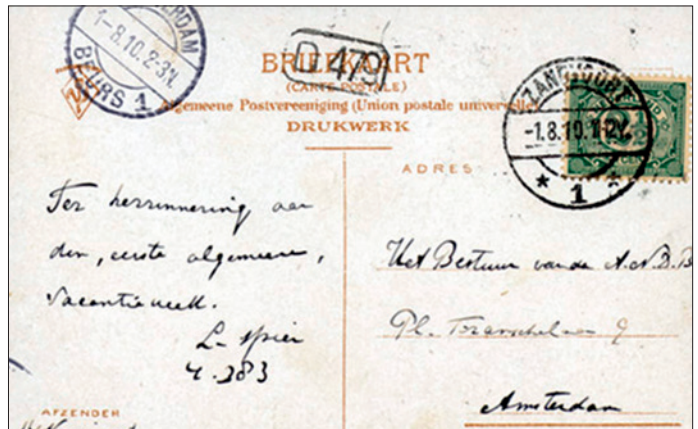 AMSTERDAM
1-8.10.2-3N.
BEURS 1
D 479
BRIEFKAART
(CARTE POSTALE)
Algemeene Postvereeniging (Union postale universelle)
DRUKWERK
ZANDVOORT
-1.8.10.1-2N.
1
ADRES
Ter herinnering aan
den „eerste algemeene„
vacantieweek.
L. Spier
4.383
Het Bestuur van de A.N.D.B
Pl. Franschelaan 9
Amsterdam
AFZENDER